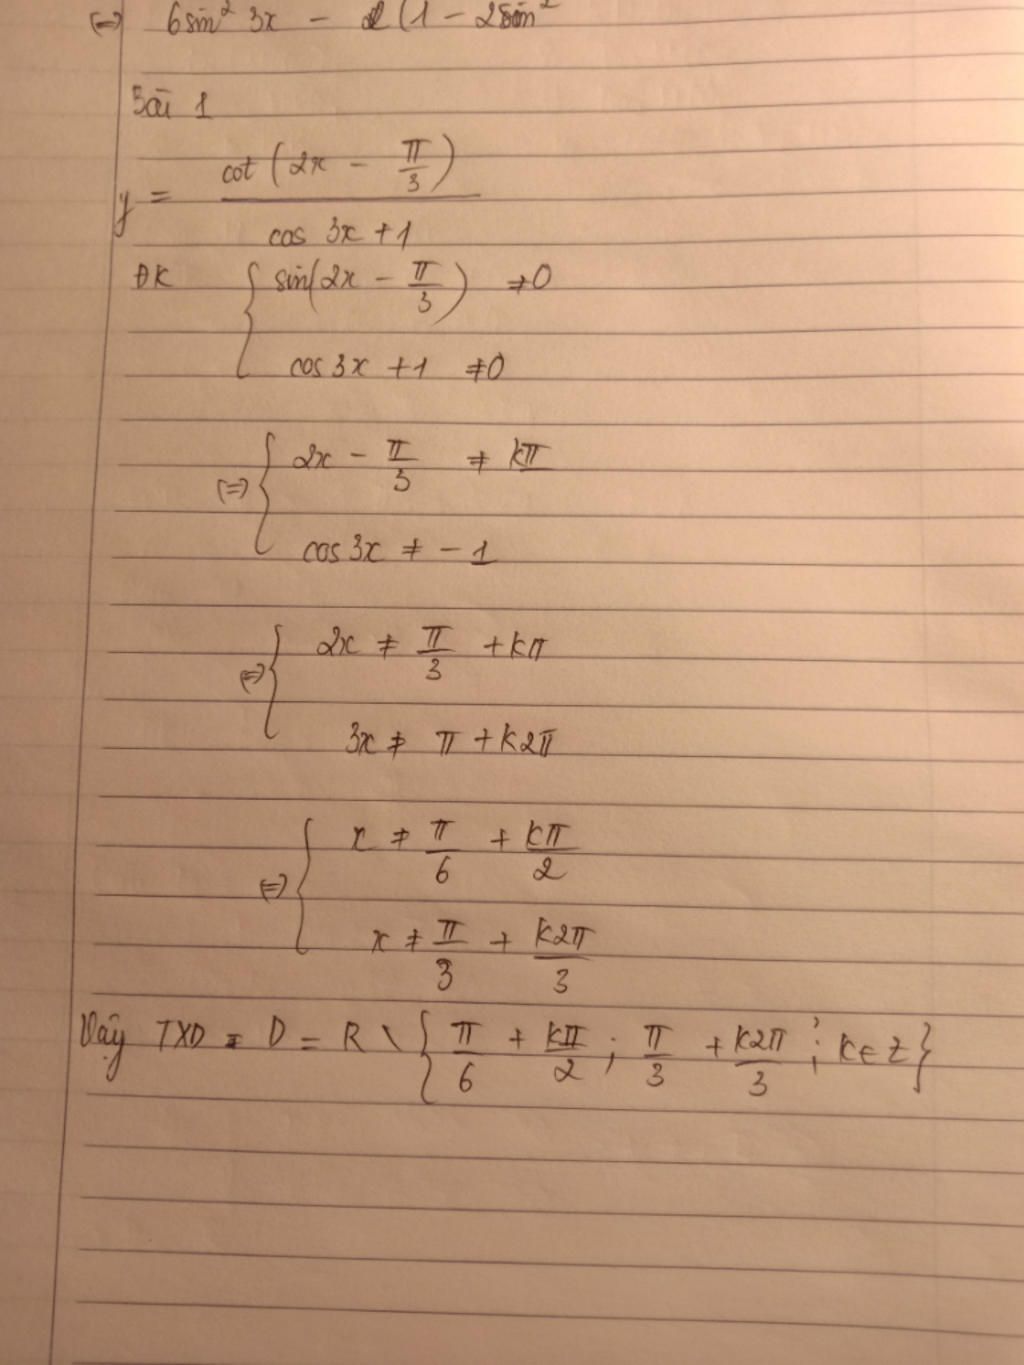 (=) 6sin² 3x - 2(1 - 2sin²
Bài 1
y = cot(2x - π/3) / cos 3x + 1
ĐK { sin(2x - π/3) ≠ 0
cos 3x + 1 ≠ 0
(=) { 2x - π/3 ≠ kπ
cos 3x ≠ - 1
(=) { 2x ≠ π/3 + kπ
3x ≠ π + k2π
(=) { x ≠ π/6 + kπ/2
x ≠ π/3 + k2π/3
Vậy TXD = D = R \ { π/6 + kπ/2 ; π/3 + k2π/3 ; k ∈ Z }